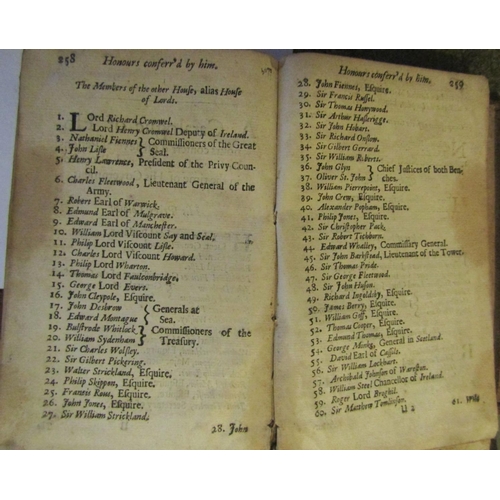 258
Honours conferr'd by him.
The Members of the other House, alias House
of Lords.
1. Lord Richard Cromwel.
2. Lord Henry Cromwel Deputy of Ireland.
3. Nathaniel Fiennes } Commissioners of the Great
4. John Lisle } Seal.
5. Henry Lawrence, President of the Privy Coun-
cil.
6. Charles Fleetwood, Lieutenant General of the
Army.
7. Robert Earl of Warwick.
8. Edmund Earl of Mulgrave.
9. Edward Earl of Manchester.
10. William Lord Viscount Say and Seal.
11. Philip Lord Viscount Lisle.
12. Charles Lord Viscount Howard.
13. Philip Lord Wharton.
14. Thomas Lord Faulconbridge.
15. George Lord Evers.
16. John Cleypole, Esquire.
17. John Desbrow } Generals at
18. Edward Montague } Sea.
19. Bulstrode Whitlock } Commissioners of the
20. William Sydenham } Treasury.
21. Sir Charles Wolsey.
22. Sir Gilbert Pickering.
23. Walter Strickland, Esquire.
24. Philip Skippon, Esquire.
25. Francis Rous, Esquire.
26. John Jones, Esquire.
27. Sir William Strickland.
28. John
Honours conferr'd by him.
259
28. John Fiennes, Esquire.
29. Sir Francis Russel.
30. Sir Thomas Honywood.
31. Sir Arthur Haslerigge.
32. Sir John Hobart.
33. Sir Richard Onslow.
34. Sir Gilbert Gerrard.
35. Sir William Roberts.
36. John Glyn } Chief Justices of both Ben-
37. Oliver St. John } ches.
38. William Pierrepoint, Esquire.
39. John Crew, Esquire.
40. Alexander Popham, Esquire.
41. Philip Jones, Esquire.
42. Sir Christopher Pack.
43. Sir Robert Tichborn.
44. Edward Whalley, Commissary General.
45. Sir John Barkstead, Lieutenant of the Tower.
46. Sir Thomas Pride.
47. Sir George Fleetwood.
48. Sir John Huson.
49. Richard Ingoldsby, Esquire.
50. James Berry, Esquire.
51. William Goff, Esquire.
52. Thomas Cooper, Esquire.
53. Edmund Thomas, Esquire.
54. George Monk, General in Scotland.
55. David Earl of Cassils.
56. Sir William Lockhart.
57. Archibald Johnson of Wareston.
58. William Steel Chancellor of Ireland.
59. Roger Lord Broghil.
60. Sir Matthew Tomlinson.
U 2
61.